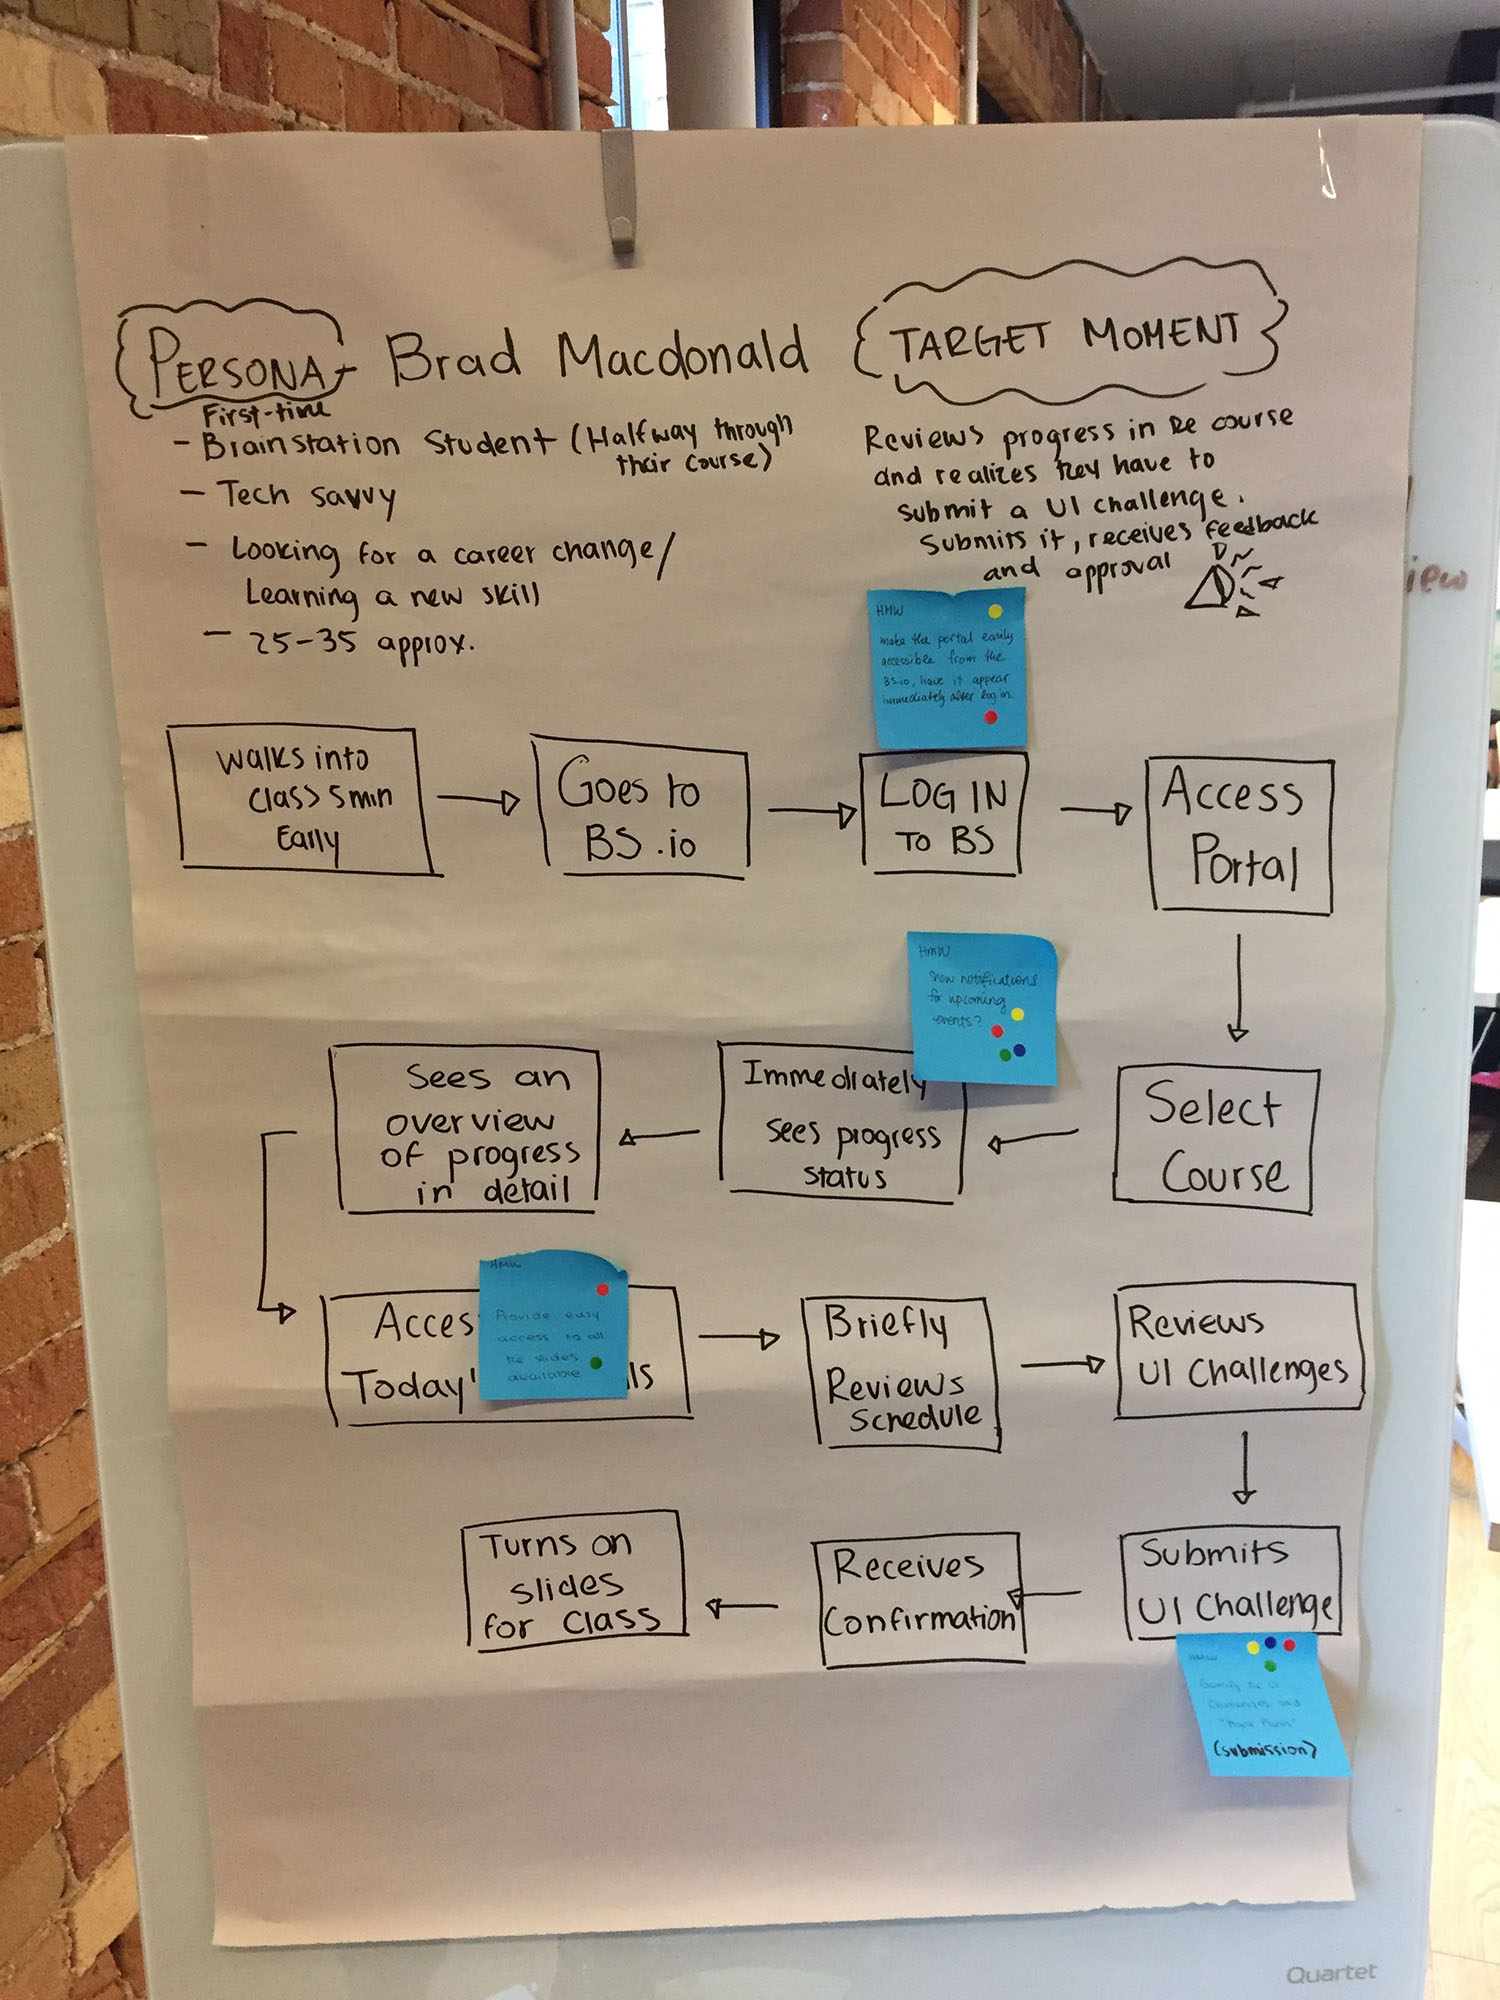 PERSONA - Brad Macdonald
First-time
- Brainstation Student (Halfway through
their course)
- Tech savvy
- Looking for a career change/
Learning a new skill
- 25-35 approx.
TARGET MOMENT
Reviews progress in the course
and realizes they have to
submit a UI challenge.
Submits it, receives feedback
and approval
HMW
make the portal easily
accessible from the
BS.io, have it appear
immediately after log in.
Walks into
class 5min
Early
Goes to
BS.io
LOG IN
TO BS
Access
Portal
HMW
show notifications
for upcoming
events?
Select
Course
Immediately
sees progress
status
Sees an
overview
of progress
in detail
Acces
Today'
ls
HMW
Provide easy
access to all
the slides
available
Briefly
Reviews
Schedule
Reviews
UI Challenges
Submits
UI Challenge
HMW
Gamify the UI
Challenges and
(submission)
Receives
Confirmation
Turns on
slides
for Class
iew
Quartet